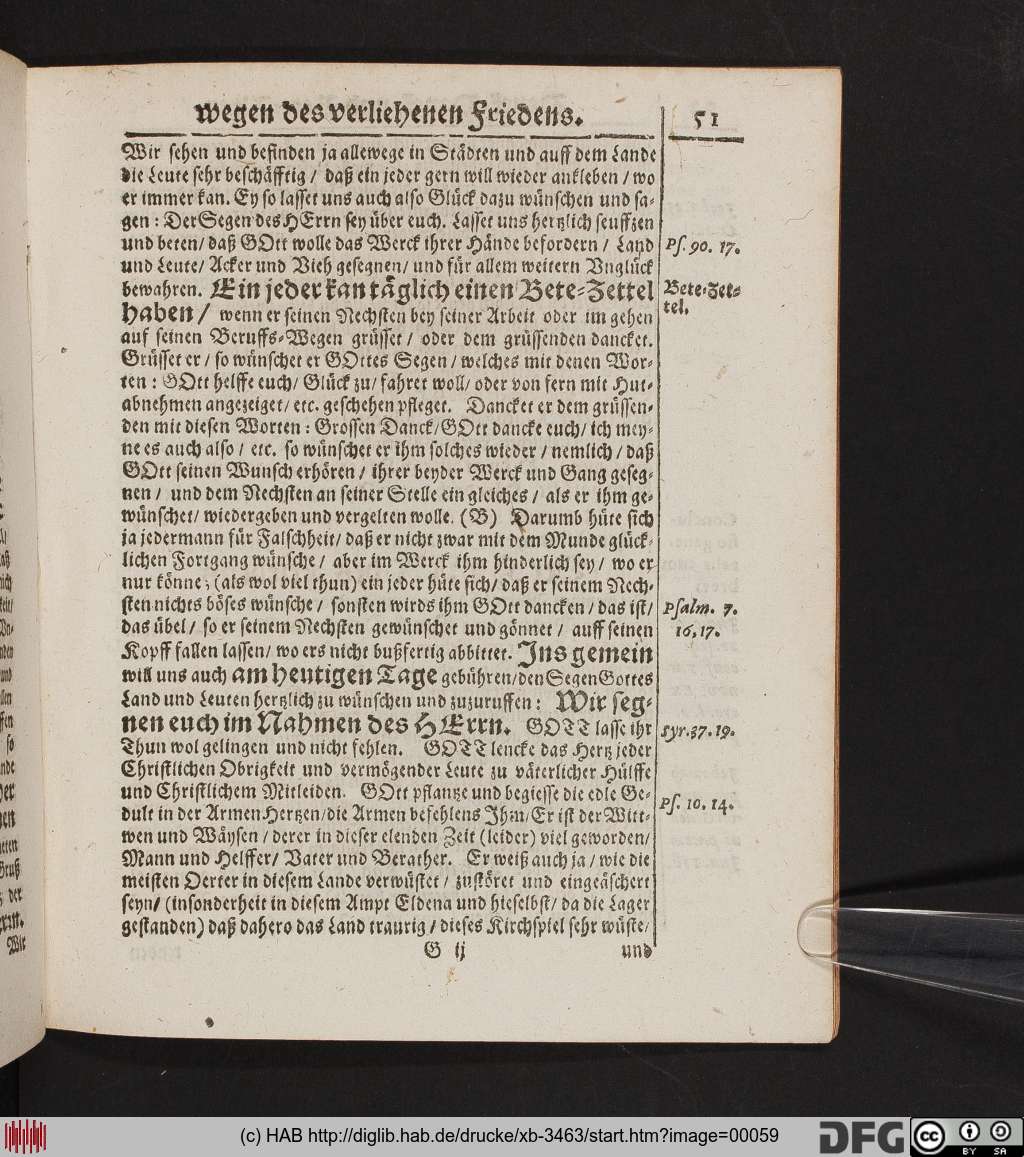 wegen des verliehenen Friedens. 51
Wir sehen und befinden ja allewege in Städten und auff dem Lande
die Leute sehr beschäfftig / daß ein jeder gern will wieder ankleben / wo
er immer kan. Ey so lasset uns auch also Glück dazu wünschen und sa-
gen : Der Segen des HErrn sey über euch. Lasset uns hertzlich seuffzen
und beten/ daß GOtt wolle das Werck ihrer Hände befordern / Land
Ps. 90. 17.
und Leute/ Acker und Vieh gesegnen/ und für allem weitern Vnglück
bewahren. Ein jeder kan täglich einen Bete-Zettel
Bete-Zet-
haben / wenn er seinen Nechsten bey seiner Arbeit oder im gehen
tel.
auf seinen Beruffs-Wegen grüsset / oder dem grüssenden dancket.
Grüsset er / so wünschet er GOttes Segen / welches mit denen Wor-
ten : GOtt helffe euch/ Glück zu/ fahret woll/ oder von fern mit Hut-
abnehmen angezeiget/ etc. geschehen pfleget. Dancket er dem grüssen-
den mit diesen Worten : Grossen Danck/ GOtt dancke euch/ ich mey-
ne es auch also / etc. so wünschet er ihm solches wieder / nemlich / daß
GOtt seinen Wunsch erhören / ihrer beyder Werck und Gang geseg-
nen / und dem Nechsten an seiner Stelle ein gleiches / als er ihm ge-
wünschet/ wiedergeben und vergelten wolle. (B) Darumb hüte sich
ja jedermann für Falschheit/ daß er nicht zwar mit dem Munde glück-
lichen Fortgang wünsche / aber im Werck ihm hinderlich sey / wo er
nur könne; (als wol viel thun) ein jeder hüte sich/ daß er seinem Nech-
sten nichts böses wünsche / sonsten wirds ihm GOtt dancken / das ist/
Psalm. 7.
das übel / so er seinem Nechsten gewünschet und gönnet / auff seinen
16, 17.
Kopff fallen lassen/ wo ers nicht bußfertig abbittet. Ins gemein
will uns auch am heutigen Tage gebühren/ den Segen Gottes
Land und Leuten hertzlich zu wünschen und zuzuruffen : Wir seg-
nen euch im Nahmen des HErrn. GOTT lasse ihr
Syr. 37. 19.
Thun wol gelingen und nicht fehlen. GOTT lencke das Hertz jeder
Christlichen Obrigkeit und vermögender Leute zu väterlicher Hülffe
und Christlichem Mitleiden. GOtt pflantze und begiesse die edle Ge-
Ps. 10. 14.
dult in der Armen Hertzen/ die Armen befehlens Ihm/ Er ist der Witt-
wen und Wäysen / derer in dieser elenden Zeit (leider) viel geworden/
Mann und Helffer/ Vater und Berather. Er weiß auch ja / wie die
meisten Oerter in diesem Lande verwüstet / zustöret und eingeäschert
seyn/ (insonderheit in diesem Ampt Eldena und hieselbst/ da die Lager
gestanden) daß dahero das Land traurig / dieses Kirchspiel sehr wüste/
G ij und
(c) HAB http://diglib.hab.de/drucke/xb-3463/start.htm?image=00059
DFG cc BY SA